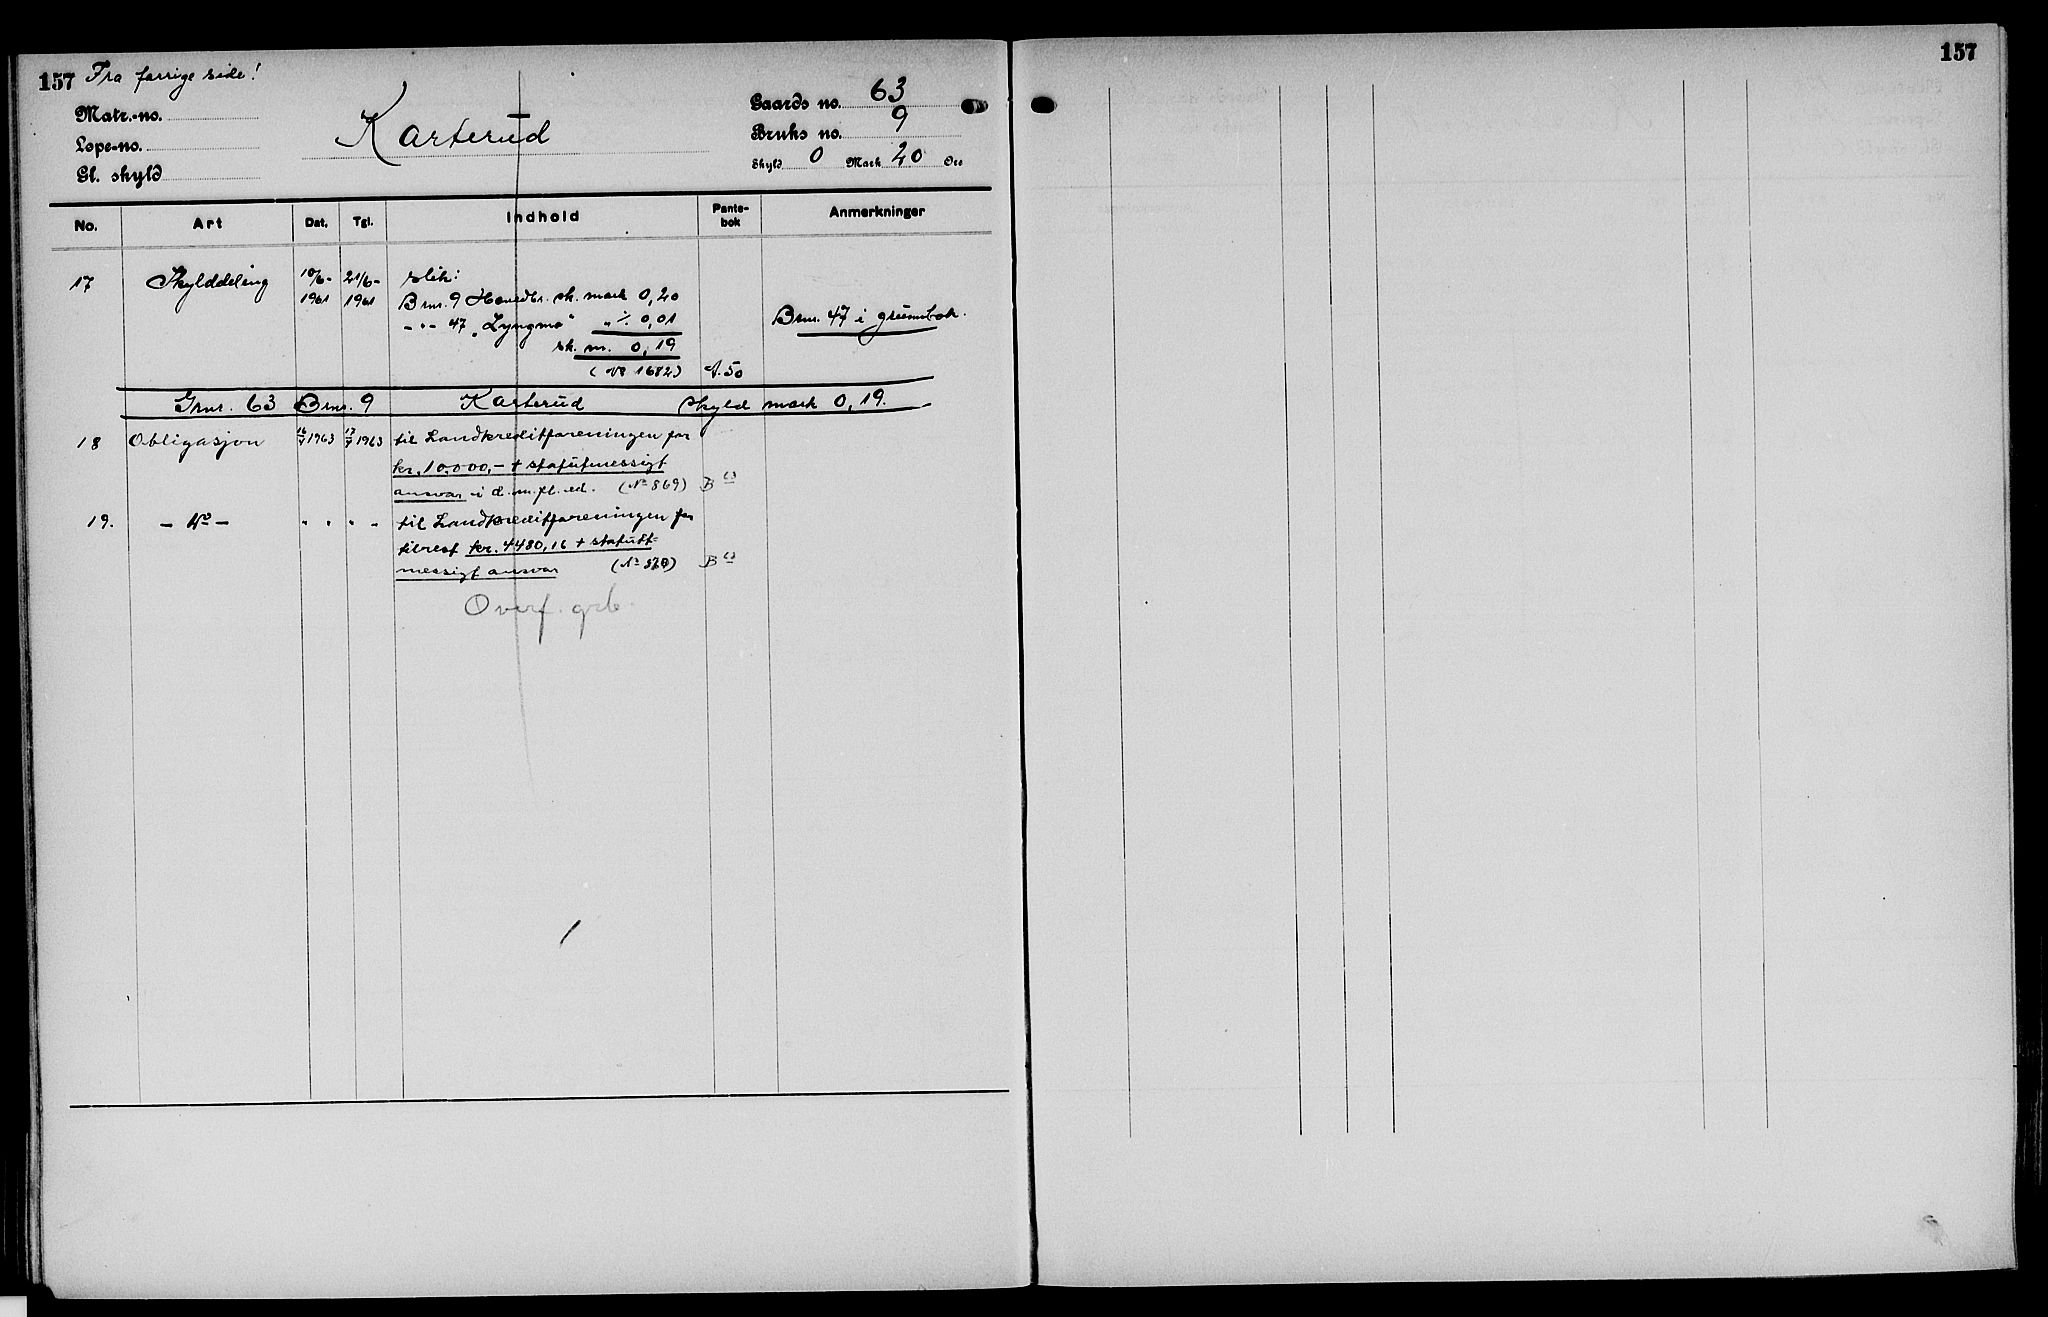 157 Fra forrige side!
Matr.-no.
Løpe-no.
Gl. skyld
Karterud
Gaards no. 63
Bruks no. 9
Skyld 0 Mark 20 Øre
No. Art Dat. Tgl. Indhold Pante-bok Anmerkninger
17 Skylddeling 10/6- 21/6- slik:
1961 1961 Brnr. 9 Hovedbr. sk. mark 0,20
-"- 47 „Lyngmo" " ÷ 0,01 Brnr. 47 i grunnbok.
sk. m. 0,19
(No 1682) A.50
Gnr. 63 Brnr. 9 Karterud skyld mark 0,19.
18 Obligasjon 16/7 1963 17/7 1963 til Landkreditforeningen for
kr. 10.000,- + statutmessigt
ansvar i d. m. fl. ed. (No 869) B 63
19. - do - " " " - til Landkreditforeningen for
tilrest kr. 4480,16 + statutt-
messigt ansvar (No 870) B 63
Overf. grb.
157